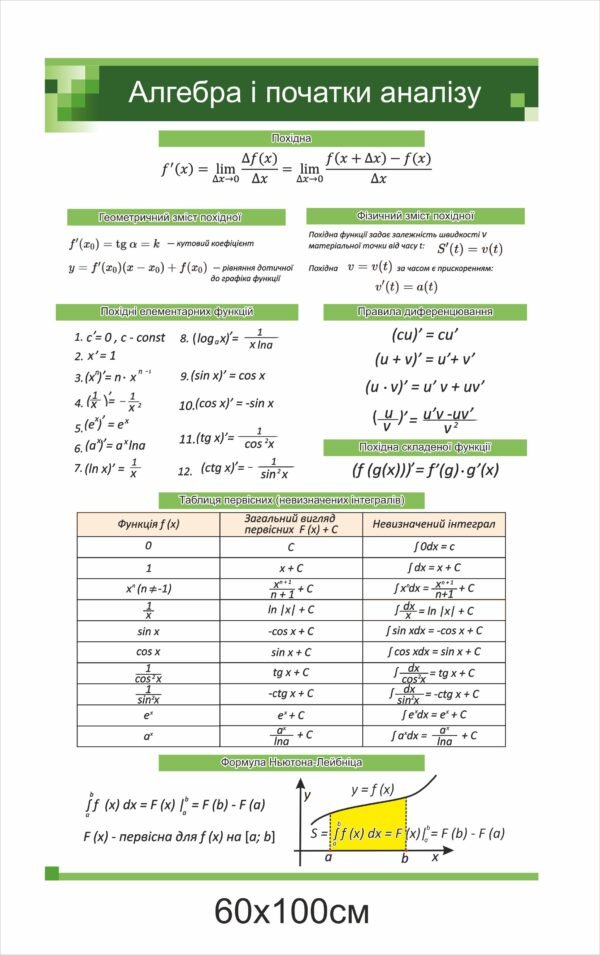 Алгебра і початки аналізу
Похідна
f′(x) = lim Δx→0 Δf(x)/Δx = lim Δx→0 (f(x + Δx) − f(x))/Δx
Геометричний зміст похідної
f′(x₀) = tg α = k — кутовий коефіцієнт
y = f′(x₀)(x − x₀) + f(x₀) — рівняння дотичної
до графіка функції
Фізичний зміст похідної
Похідна функції задає залежність швидкості V
матеріальної точки від часу t: S′(t) = v(t)
Похідна v = v(t) за часом в прискоренням:
v′(t) = a(t)
Похідні елементарних функцій
1. c′= 0 , c - const
2. x′ = 1
3. (xⁿ)′= n · x ⁿ ⁻¹
4. (1/x)′= - 1/x²
5. (eˣ)′ = eˣ
6. (aˣ)′= aˣ lna
7. (ln x)′ = 1/x
8. (logₐx)′= 1/(x lna)
9. (sin x)′ = cos x
10. (cos x)′ = -sin x
11. (tg x)′= 1/cos²x
12. (ctg x)′= - 1/sin²x
Правила диференцювання
(cu)′ = cu′
(u + v)′ = u′+ v′
(u · v)′ = u′ v + uv′
(u/v)′ = (u′v -uv′)/v²
Похідна складеної функції
(f (g(x)))′ = f′(g) · g′(x)
Таблиця первісних (невизначених інтегралів)
Функція f (x)
Загальний вигляд
первісних F (x) + C
Невизначений інтеграл
0 C ∫ 0dx = c
1 x + C ∫ dx = x + C
xⁿ (n ≠ -1) xⁿ⁺¹/(n + 1) + C ∫ xⁿdx = xⁿ⁺¹/(n+1) + C
1/x ln |x| + C ∫ dx/x = ln |x| + C
sin x -cos x + C ∫ sin xdx = -cos x + C
cos x sin x + C ∫ cos xdx = sin x + C
1/cos²x tg x + C ∫ dx/cos²x = tg x + C
1/sin²x -ctg x + C ∫ dx/sin²x = -ctg x + C
eˣ eˣ + C ∫ eˣdx = eˣ + C
aˣ aˣ/lna + C ∫ aˣdx = aˣ/lna + C
Формула Ньютона-Лейбніца
∫ₐᵇ f (x) dx = F (x) |ₐᵇ = F (b) - F (a)
F (x) - первісна для f (x) на [a; b]
y
y = f (x)
S = ∫ₐᵇ f (x) dx = F (x)|ₐᵇ = F (b) - F (a)
a b x
60x100см